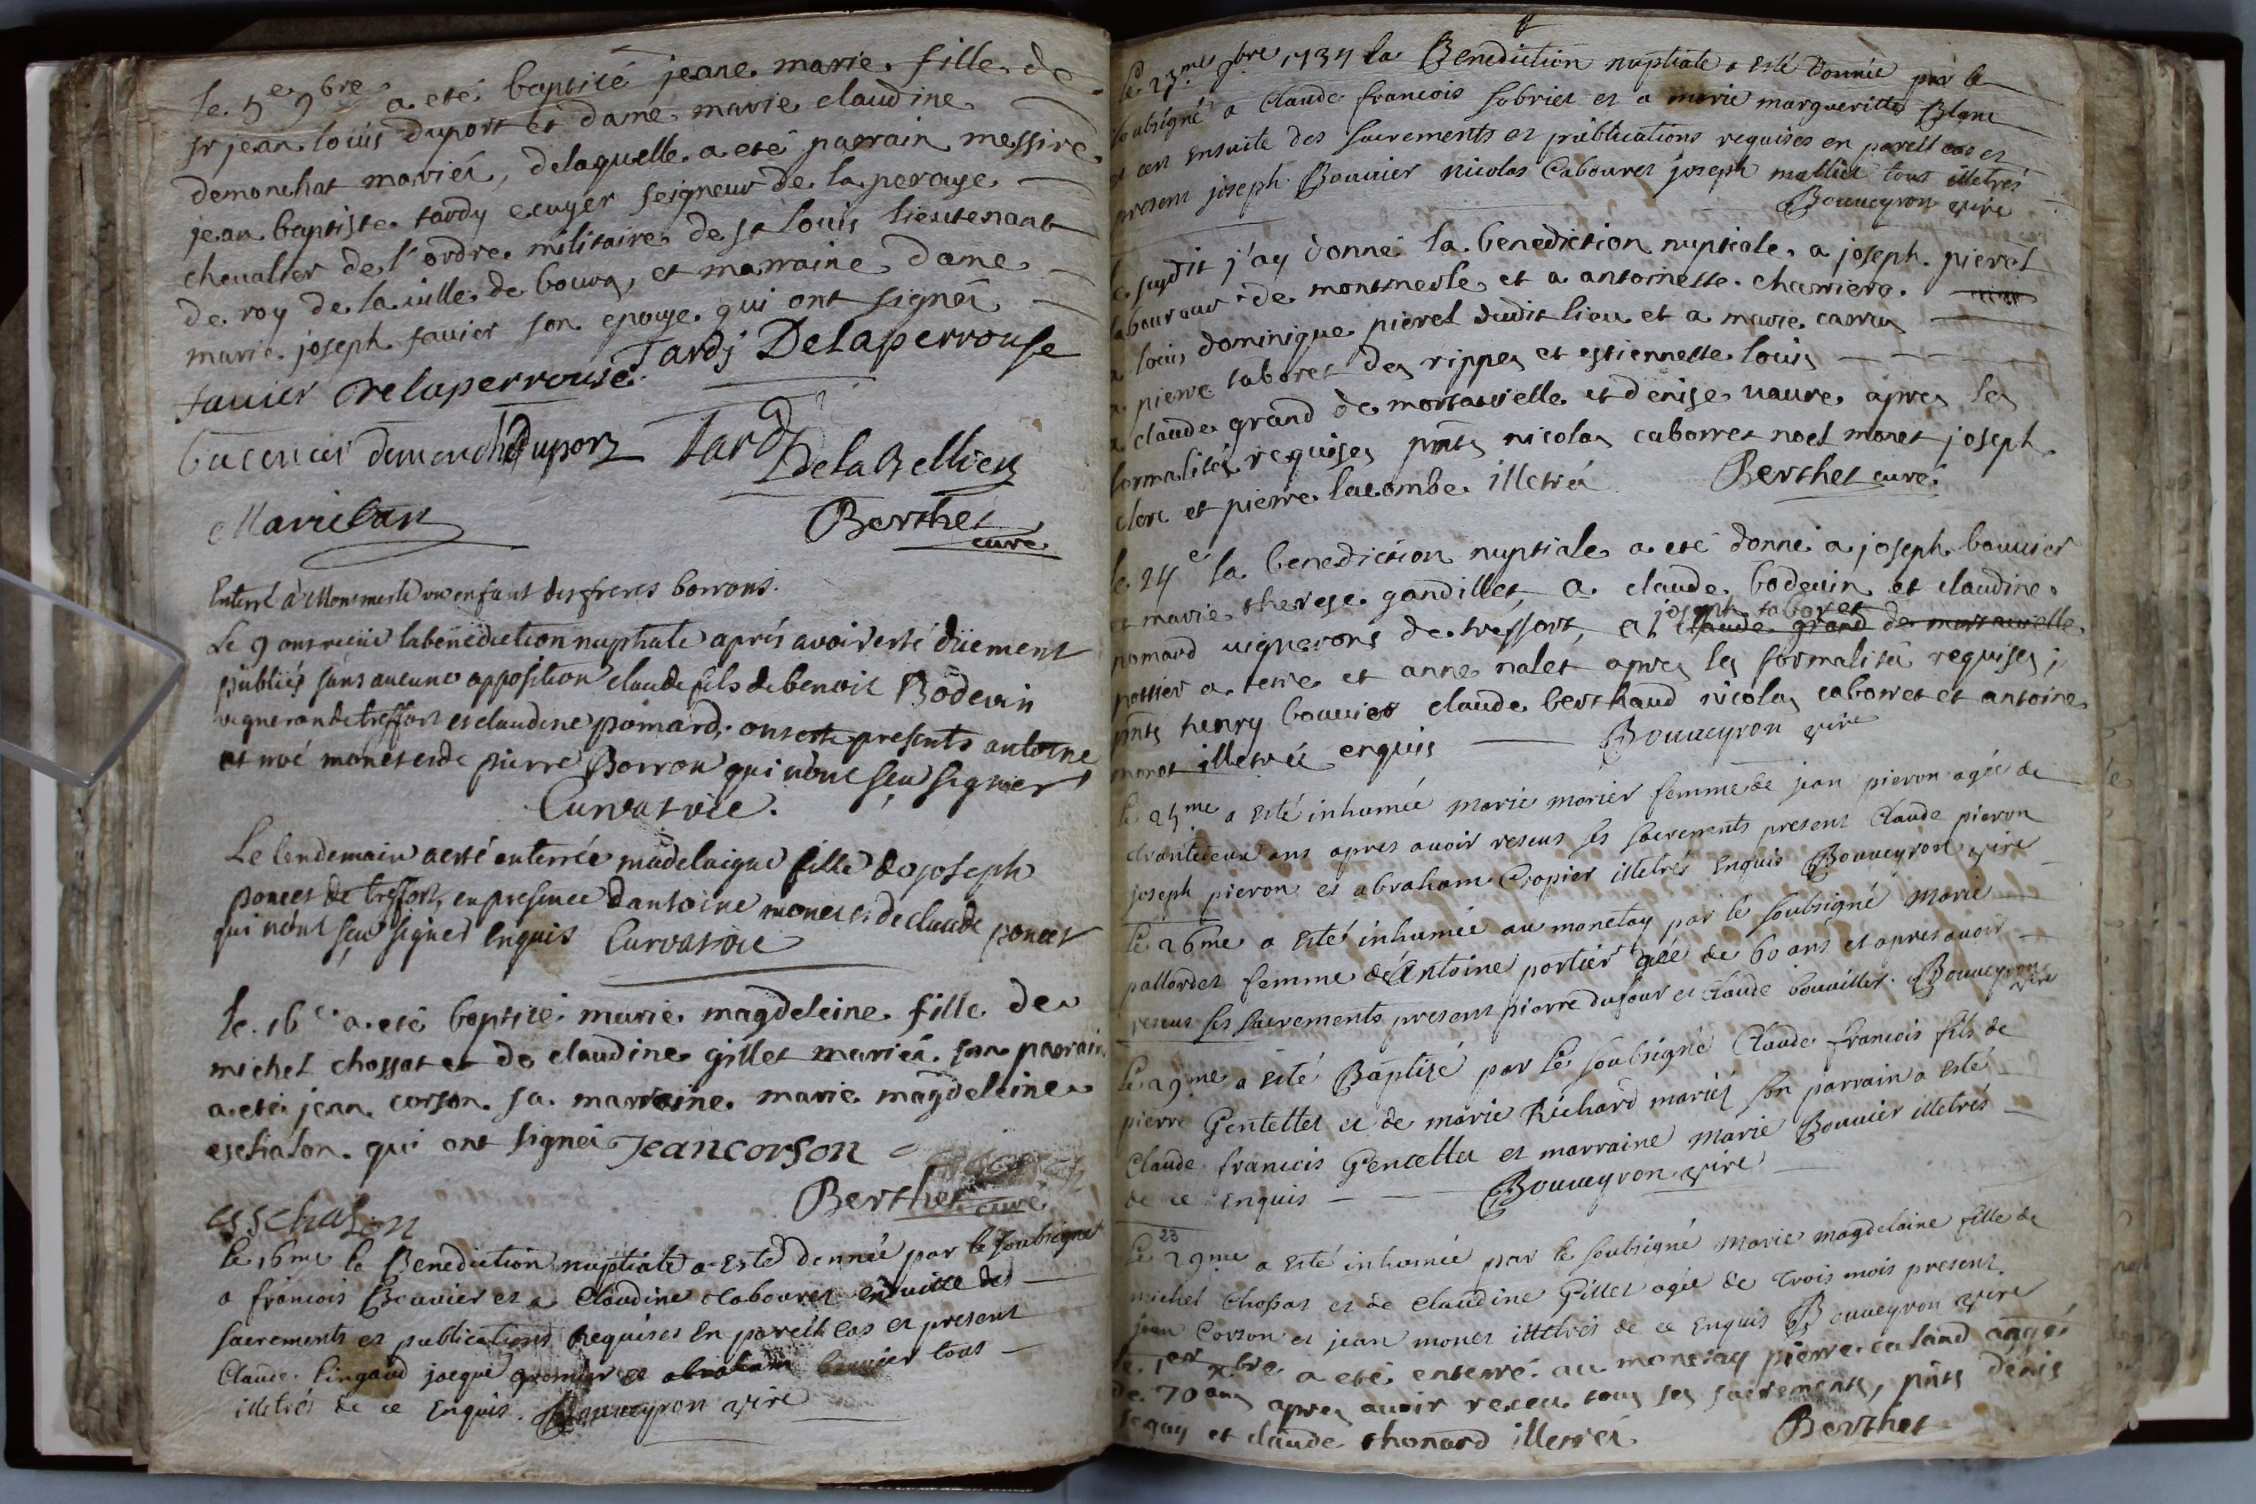 le 5e 9bre a eté baptisé jeane marie fille de
sr jean loüis duport et dame marie claudine
demonchat mariés, delaquelle a eté parrain messire
jean baptiste tardy ecuyer seigneur de la perouse
chevalier de l'ordre militaire de st louis lieutenant
de roy de la ville de bourg, et marraine dame
marie joseph favier son epouse qui ont signés
favier Delaperrouse Tardj Delaperrouse
demonchat Duport Tardy
Delabellieu
Berthet
curé
Enterré à Monmerle un enfant des freres borrons.
Le 9 ont recüe la benediction nuptiale aprés avoir esté düement
publiés sans aucune opposition claude fils de benoit Bodevin
vigneron de treffort et claudine pomard; ont esté presents antoine
et noé monet et de pierre Borron qui n'ont sçu signer
Curvat vic.
Le lendemain a esté enterrée madelaigne fille de joseph
poncet de treffort, en presence d'antoine monet et de claude poncet
qui n'ont sçu signer enquis Curvat vic
le 16e a eté baptisé marie magdeleine fille de
michel chossat et de claudine gillet mariés. son parrain
a eté jean corson sa marraine marie magdeleine
eschalon qui ont signés Jean corson
Berthet curé
esschalon
le 16me la Benediction nuptiale a esté donnée par le soubsigné
a francois Bouvier et a Claudine Cabouret ensuitte des
sacrements et publications Requises En pareil cas et present
Claude Pingaud jacque et abraham bouvier tous
illetrés de ce Enquis. Bouveyron vire
le 23me 9bre 1734 la Benediction nuptiale a esté donnée par le
soubsigné a Claude francois sobriet et a marie margueritte Blanc
et ce ensuite des sacrements et publications requises en pareil cas et
present joseph Bouvier nicolas Cabouret joseph mallet tous illetrés
Bouveyron vire
le susdit j'ay donné la benediction nuptiale a joseph pierel
laboureur de montmerle et a antoinette charriere
a loüis dominique pierel dudit lieu et a marie carru
a pierre taboret des rippes et estiennette louis
a claude grand de mortarvelle et denise vaure apres les
formalités requises pnts nicolas caborret noel monet joseph
clerc et pierre lacombe illetrés Berthet curé
le 24e la benediction nuptiale a eté donné a joseph bouvier
et marie therese gandillet, a claude bodevin et claudine
joseph taboret
pomard vignerons de treffort, et a claude grand de mortarvelle
pottier a terre et anne nalet apres les formalités requises;
pnts henry bouvier claude berthaud nicolas caborret et antoine
monet illetrés enquis Bouveyron vire
le 25me a esté inhumée Marie morier femme de jean pieron agée de
ans apres avoir reseus ses sacrements present Claude pieron
joseph pieron et abraham Cropier illetrés Enquis Bouveyron vire
le 26me a esté inhumée au monetay par le soubsigné Marie
pallordet femme de Antoine portier agée de 60 ans et apres avoir
reseus ses sacrements present pierre dufour et Claude bouvillet. Bouveyron
vire
le 29me a esté Baptisé par le soubsigné Claude francois fils de
pierre Gentellet et de marie Richard mariés son parrain a esté
Claude francois Gentellet et marraine Marie Bouvier illetrés
de ce Enquis Bouveyron vire
23
le 29me a esté inhumée par le soubsigné Marie magdelaine fille de
michel Chossat et de Claudine Gillet agée de trois mois present
jean Corson et jean monet illetrés de ce Enquis Bouveyron vire
le 1er xbre a eté enterré au monetay pierre caland augé
de 70 ans apres avoir receu tous ses sacrements, pnts denis
seguy et claude thonard illetrés Berthet